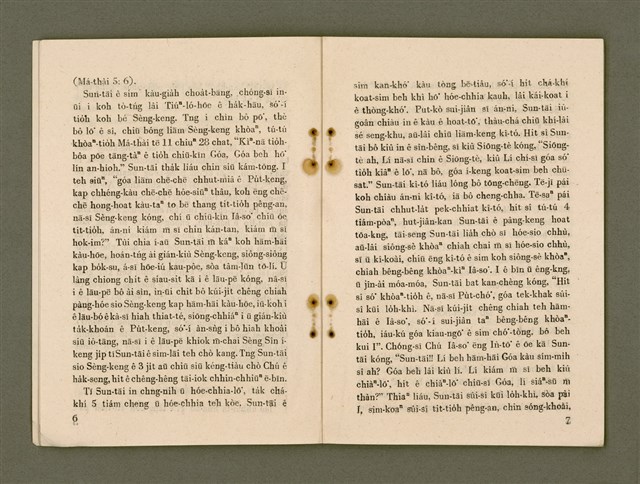 (Má-thài 5: 6).
Sun-tāi ê sim kàu-giảh choat-bāng, chóng-sī in-
ūi i koh tò-tńg lâi Tiúⁿ-ló-hōe ê hák-hāu, só͘-í
tióh koh bé Sèng-keng. Tng i chin bô pō͘, thè
bô lō͘ ê sî, chiū bóng liām Sèng-keng khòaⁿ, tú-tú
khòaⁿ-tióh Má-thài tē 11 chiuⁿ 28 chat, "Kìⁿ-nā tióh-
bôa pōe tāng-tàⁿ ê tióh chiū-kīn Góa, Góa beh hō͘
lín an-hioh." Sun-tāi thák liáu chin siū kám-tōng. I
teh siūⁿ, "góa liām chē-chē chhut-miâ ê Pút-keng,
kap chhéng-kàu chē-chē hôe-siūⁿ thâu, koh ēng chē-
chē hong-hoat kàu-taⁿ to bē thang tit-tióh pêng-an,
nā-sī Sèng-keng kóng, chí ū chiū-kīn Iâ-so͘ chiū ōe
tit-tióh, án-ni kiám m̄ sī chin kán-tan, kiám m̄ sī
hok-im?" Tùi chia í-āu Sun-tāi m̄ káⁿ koh hām-hāi
kàu-hōe, hoán-tńg ài gián-kiù Sèng-keng, siông-siông
kap bók-su, á-sī hōe-iú kau-pôe, sòa tâm-lūn tō-lí. Ū
lâng chiong chit ê siau-sit kā i ê lāu-pē kóng, nā-sī
i ê lāu-pē bô ài sìn, in-ūi chit bô kúi-jit chêng chiah
pàng-hóe sio Sèng-keng kap hām-hāi kàu-hōe, iū-koh i
ê lāu-bó ê kà-sī hiah thiat-té, siông-chhiáⁿ i ū gián-kiù
ták-khoán ê Pút-keng, só͘-í án-sǹg i bô hiah khoài
siū ió-tāng, nā-sī i ê lāu-pē khiok m̄-chai Sèng Sîn í-
keng jip tī Sun-tāi ê sim-lāi teh chò kang. Tng Sun-tāi
sio Sèng-keng ê 3 jit aū chiū siū kéng-tiàu chò Chú ê
hák-seng, hit ê chêng-hêng tāi-iok chhin-chhiūⁿ ē-bīn.
Tī Sun-tāi in chng-nih ū hóe-chhia-lō͘, ták chá-
khí 5 tiám cheng ū hóe-chhia teh kòe. Sun-tāi ê
6
sim kan-khó͘ kàu tòng bē-tiâu, só͘-í hit chá-khí
koat-sim beh khì hō͘ hóe-chhia kauh, lâi kái-koat i
ê thòng-khó͘. Put-kò sui-jiân sī án-ni, Sun-tāi iû-
goân chiàu in ê kàu ê hoat-tō͘, thàu-chá chiū khí-lâi
sé seng-khu, aū-lâi chiū liām-keng kî-tó. Hit sî Sun-
tāi bô kiû in ê sîn-bêng, sī kiû Siōng-tè kóng, "Siōng-
tè ah, Lí nā-sī chin ê Siōng-tè, kiû Lí chí-sī góa só͘
tióh kiâⁿ ê lō͘, nā bô, góa í-keng koat-sim beh chū-
sat." Sun-tāi kî-tó liáu lóng bô tōng-chēng. Tē-jī pái
koh chiàu án-ni kî-tó, iā bô cheng-chha. Tē-saⁿ pái
Sun-tāi chhut-lát pek-chhiat kî-tó, hit sî tú-tú 4
tiám-pòaⁿ, hut-jiân-kan Sun-tāi ê pâng-keng hoat
tōa-kng, tāi-seng Sun-tāi liáh chò sī hóe-sio chhù,
aū-lâi siông-sè khòaⁿ chiah chai m̄ sī hóe-sio chhù,
sī ū kî-koài, chiū ēng kî-tó ê sim koh siông-sè khòaⁿ,
chiah bêng-bêng khòaⁿ-kìⁿ Iâ-so͘. I ê bīn ū êng-kng,
ū jîn-ài móa-móa, Sun-tāi bat kan-chèng kóng, "Hit
sî só͘ khòaⁿ-tióh ê, nā-sī Put-chó͘, góa tek-khak sûi-
sî kūi lóh-khì. Nā-sī kúi-jit chêng chiah teh hām-
hāi ê Iâ-so͘, só͘-í sui-jiân taⁿ bêng-bêng khòaⁿ-
tióh, iáu-kú góa kiau-ngō͘ ê sim chó͘-tòng, bô beh
kūi I". Chóng-sī Chú Iâ-so͘ ēng Ìn-tō͘ ê ōe kā Sun-
tāi kóng, "Sun-tāi!! Lí beh hām-hāi Góa kàu sím-mih
sî ah? Góa beh lâi kiù lí. Lí kiám m̄ sī beh kiû
chiàⁿ-lō͘, hit ê chiàⁿ-lō͘ chiū-sī Góa, lí siáⁿ-sū m̄
thàn?" Thiaⁿ liáu, Sun-tāi sûi-sî kūi lóh-khì, sòa pài
I, sim-koaⁿ sûi-sî tit-tióh pêng-an, chin sóng-khoài,
7